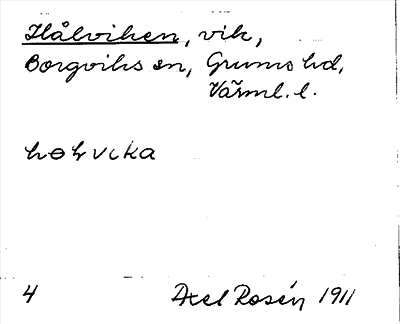 Hålviken, vik,
Borgviks sn, Grums hd,
Värml. l.
hɵḷvika
4 Axel Rosén 1911